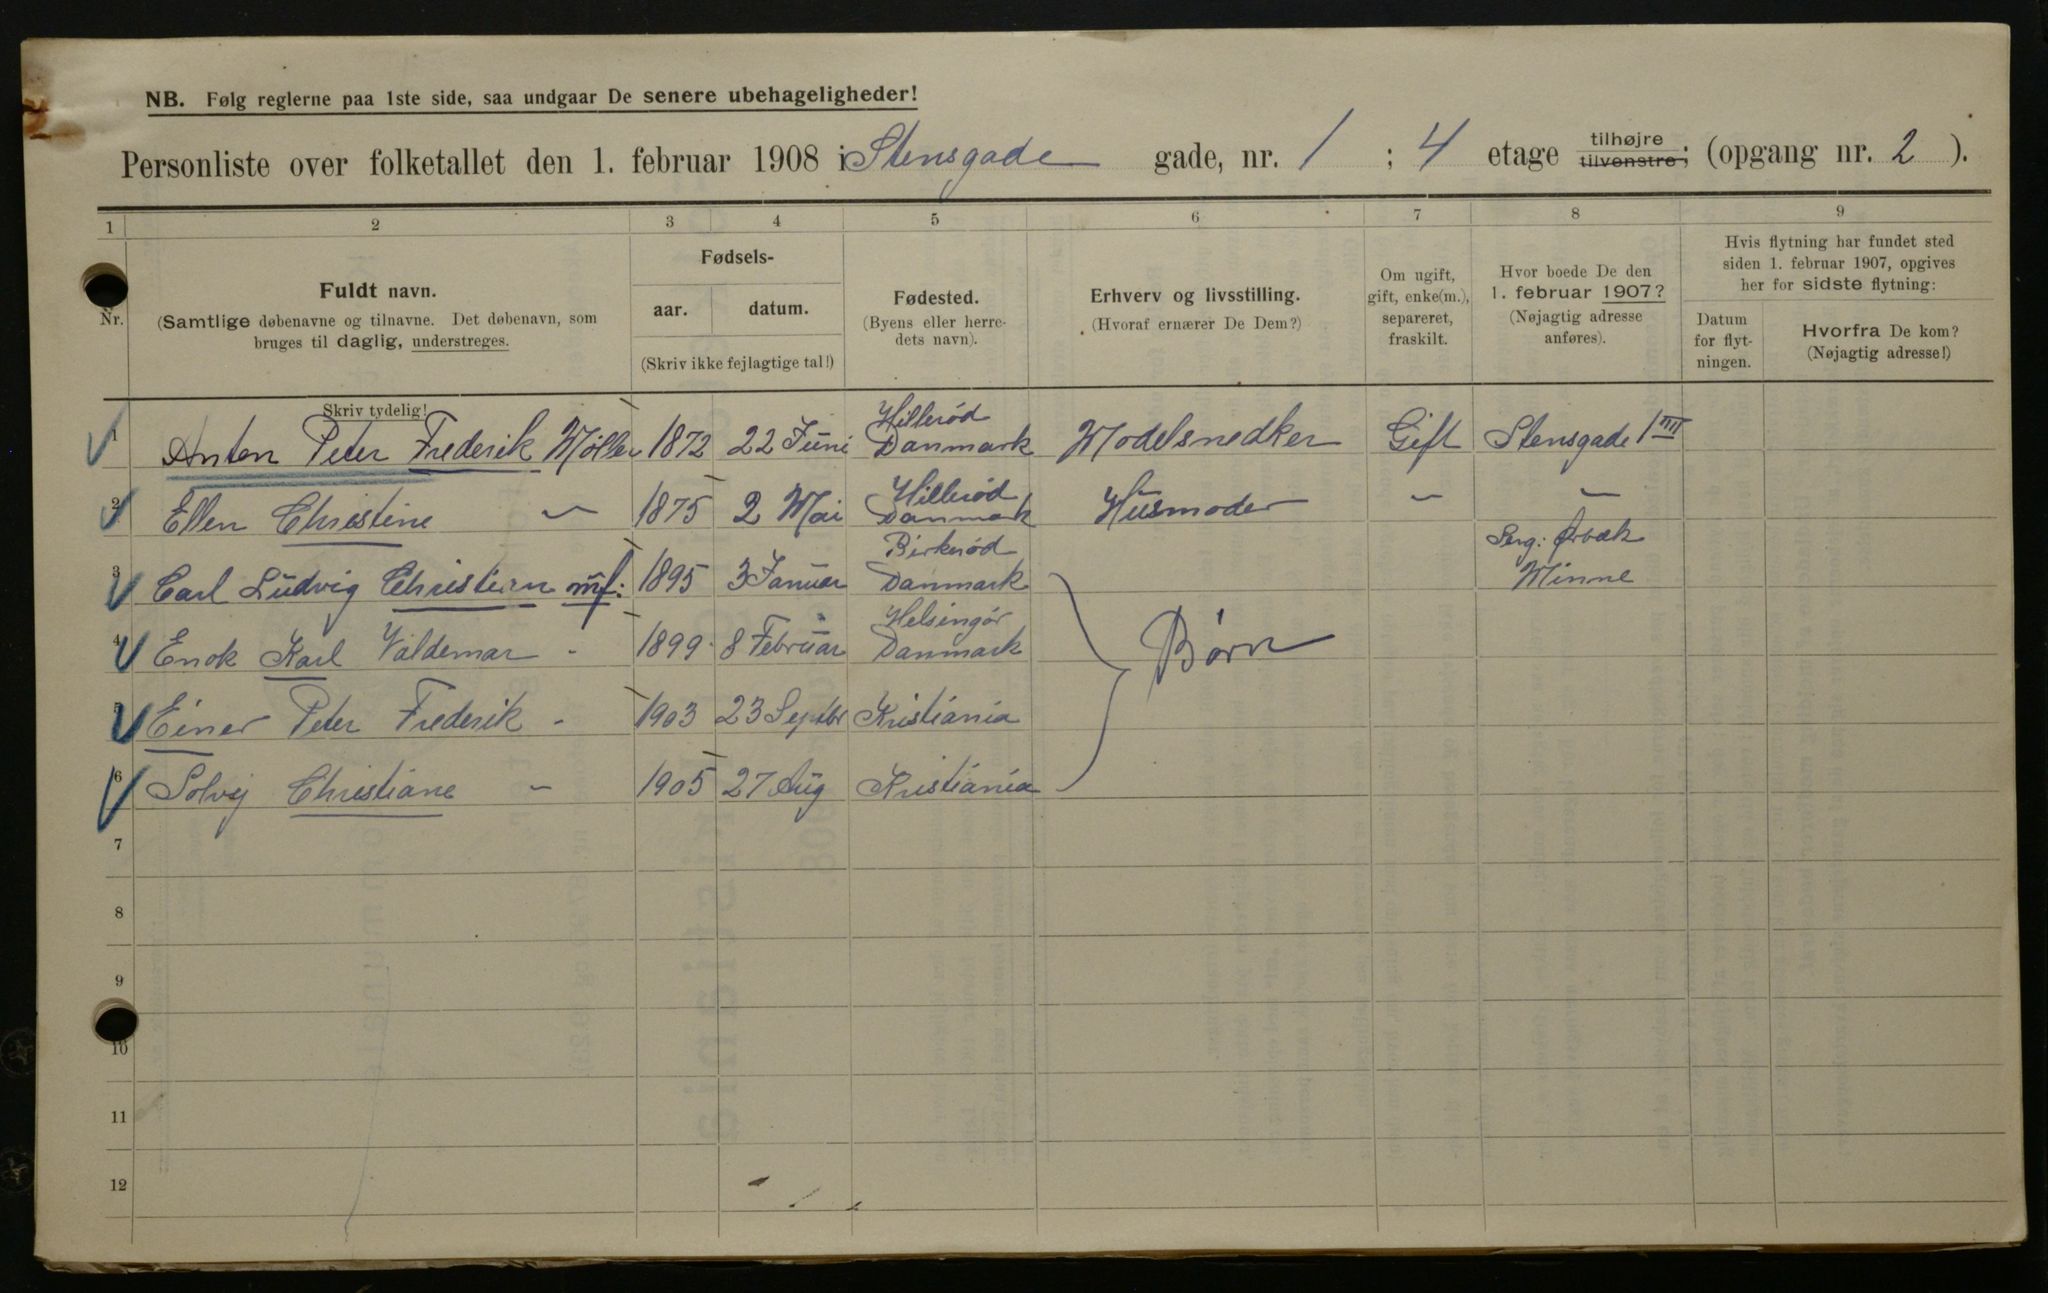 NB. Følg reglerne paa 1ste side, saa undgaar De senere ubehageligheder!
Personliste over folketallet den 1. februar 1908 i Stensgade gade, nr. 1 ; 4 etage tilhøjre tilvenstre; (opgang nr. 2 ).
1 2 3 4 5 6 7 8 9
Nr.
Fuldt navn.
(Samtlige døbenavne og tilnavne. Det døbenavn, som
bruges til daglig, understreges.
Fødsels-
aar. datum.
(Skriv ikke fejlagtige tal!)
Fødested.
(Byens eller herre-
dets navn).
Erhverv og livsstilling.
(Hvoraf ernærer De Dem?)
Om ugift,
gift, enke(m.),
separeret,
fraskilt.
Hvor boede De den
1. februar 1907?
(Nøjagtig adresse
anføres).
Hvis flytning har fundet sted
siden 1. februar 1907, opgives
her for sidste flytning:
Datum
for flyt-
ningen.
Hvorfra De kom?
(Nøjagtig adresse!)
Skriv tydelig!
1 Anton Peter Frederik Möller 1872 22 Juni Hillerød Danmark Modelsnedker Gift Stensgade 1 III
2 Ellen Christine " 1875 2 Mai Hillerød Danmark Husmoder " "
3 Carl Ludvig Christian 1895 3 Januar Birkerød Danmark Minne
4 Enok Karl Valdemar - 1899 8 Februar Helsingör Danmark Børn
5 Einer Peter Frederik - 1903 23 Septbr Kristiania
6 Solvej Christiane - 1905 27 Aug Kristiania
7
8
9
10
11
12